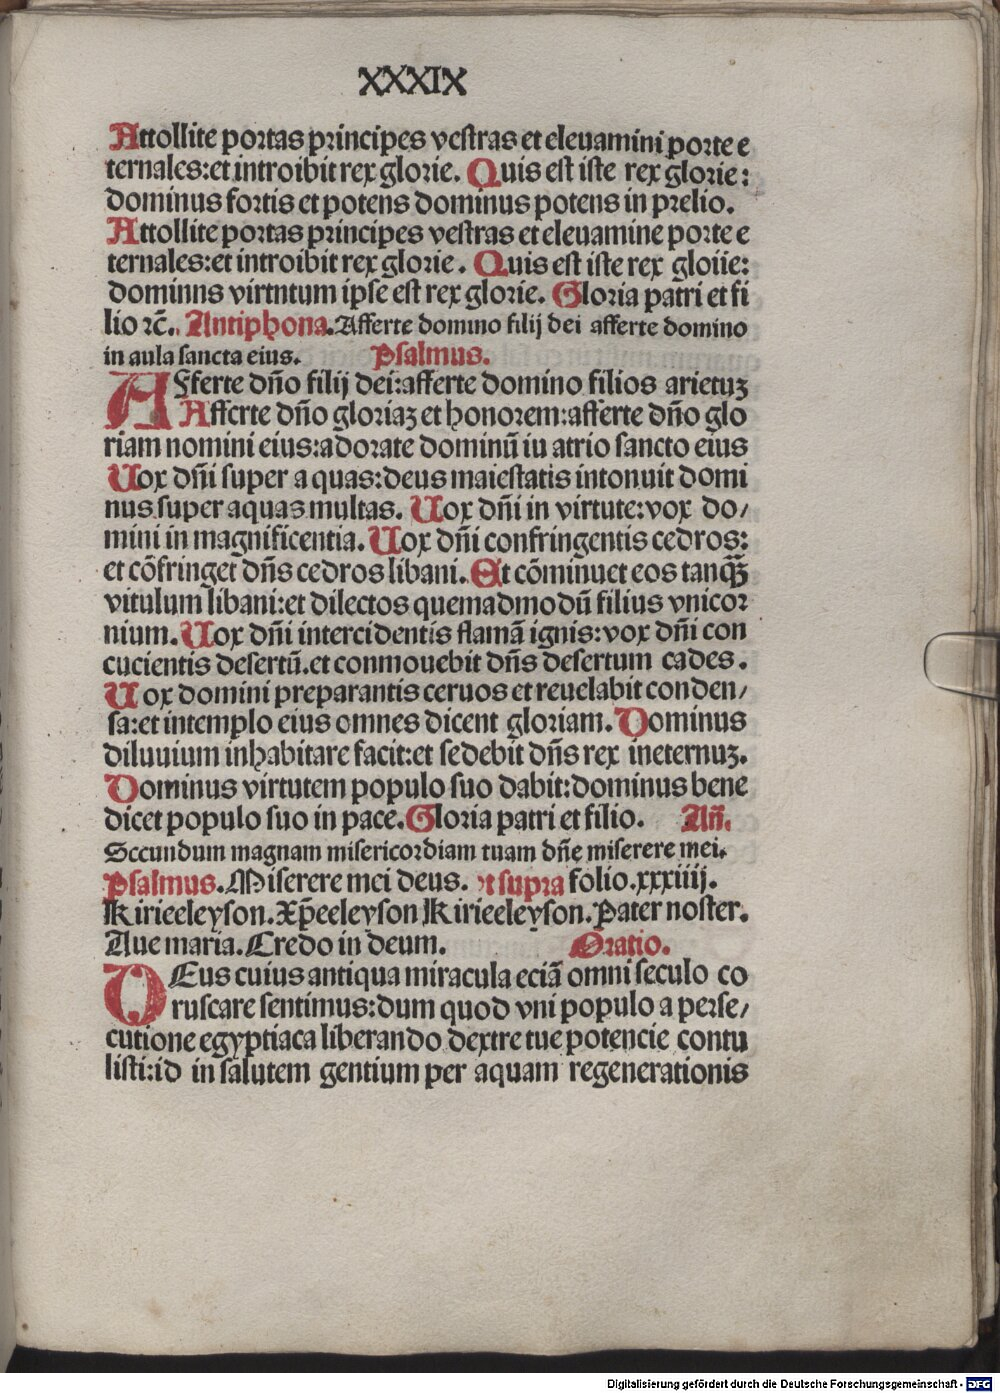 XXXIX
Attollite portas principes vestras et eleuamini porte e
ternales:et introibit rex glorie. Quis est iste rex glorie:
dominus fortis et potens dominus potens in prelio.
Attollite portas principes vestras et eleuamine porte e
ternales:et introibit rex glorie. Quis est iste rex gloiie:
dominns virtntum ipse est rex glorie. Gloria patri et fi
lio ⁊c̄. Antiphona. Afferte domino filij dei afferte domino
in aula sancta eius. Psalmus.
AFferte dn̄o filij dei:afferte domino filios arietuꝫ
Affcrte dn̄o gloriaꝫ et honorem:afferte dn̄o glo
riam nomini eius:adorate dominū iu atrio sancto eius
Uox dn̄i super aquas:deus maiestatis intonuit domi
nus super aquas multas. Uox dn̄i in virtute:vox do/
mini in magnificentia. Uox dn̄i confringentis cedros:
et cōfringet dn̄s cedros libani. Et cōminuet eos tanqꝫ̄
vitulum libani:et dilectos quemadmodū filius vnicor
nium. Uox dn̄i intercidentis flamā ignis:vox dn̄i con
cucientis desertū.et conmouebit dn̄s desertum cades.
Uox domini preparantis ceruos et reuelabit conden/
sa:et in templo eius omnes dicent gloriam. Dominus
diluuium inhabitare facit:et sedebit dn̄s rex in eternuꝫ.
Dominus virtutem populo suo dabit:dominus bene
dicet populo suo in pace. Gloria patri et filio. An̄.
Sccundum magnam misericordiam tuam dn̄e miserere mei.
Psalmus. Miserere mei deus. vt supra folio.xxxiiij.
Kirieeleyson. Xp̄eeleyson Kirieeleyson. Pater noster.
Aue maria. Credo in deum. Oratio.
DEus cuius antiqua miracula eciā omni seculo co
ruscare sentimus:dum quod vni populo a perse/
cutione egyptiaca liberando dextre tue potencie contu
listi:id in salutem gentium per aquam regenerationis
Digitalisierung gefördert durch die Deutsche Forschungsgemeinschaft - DFG